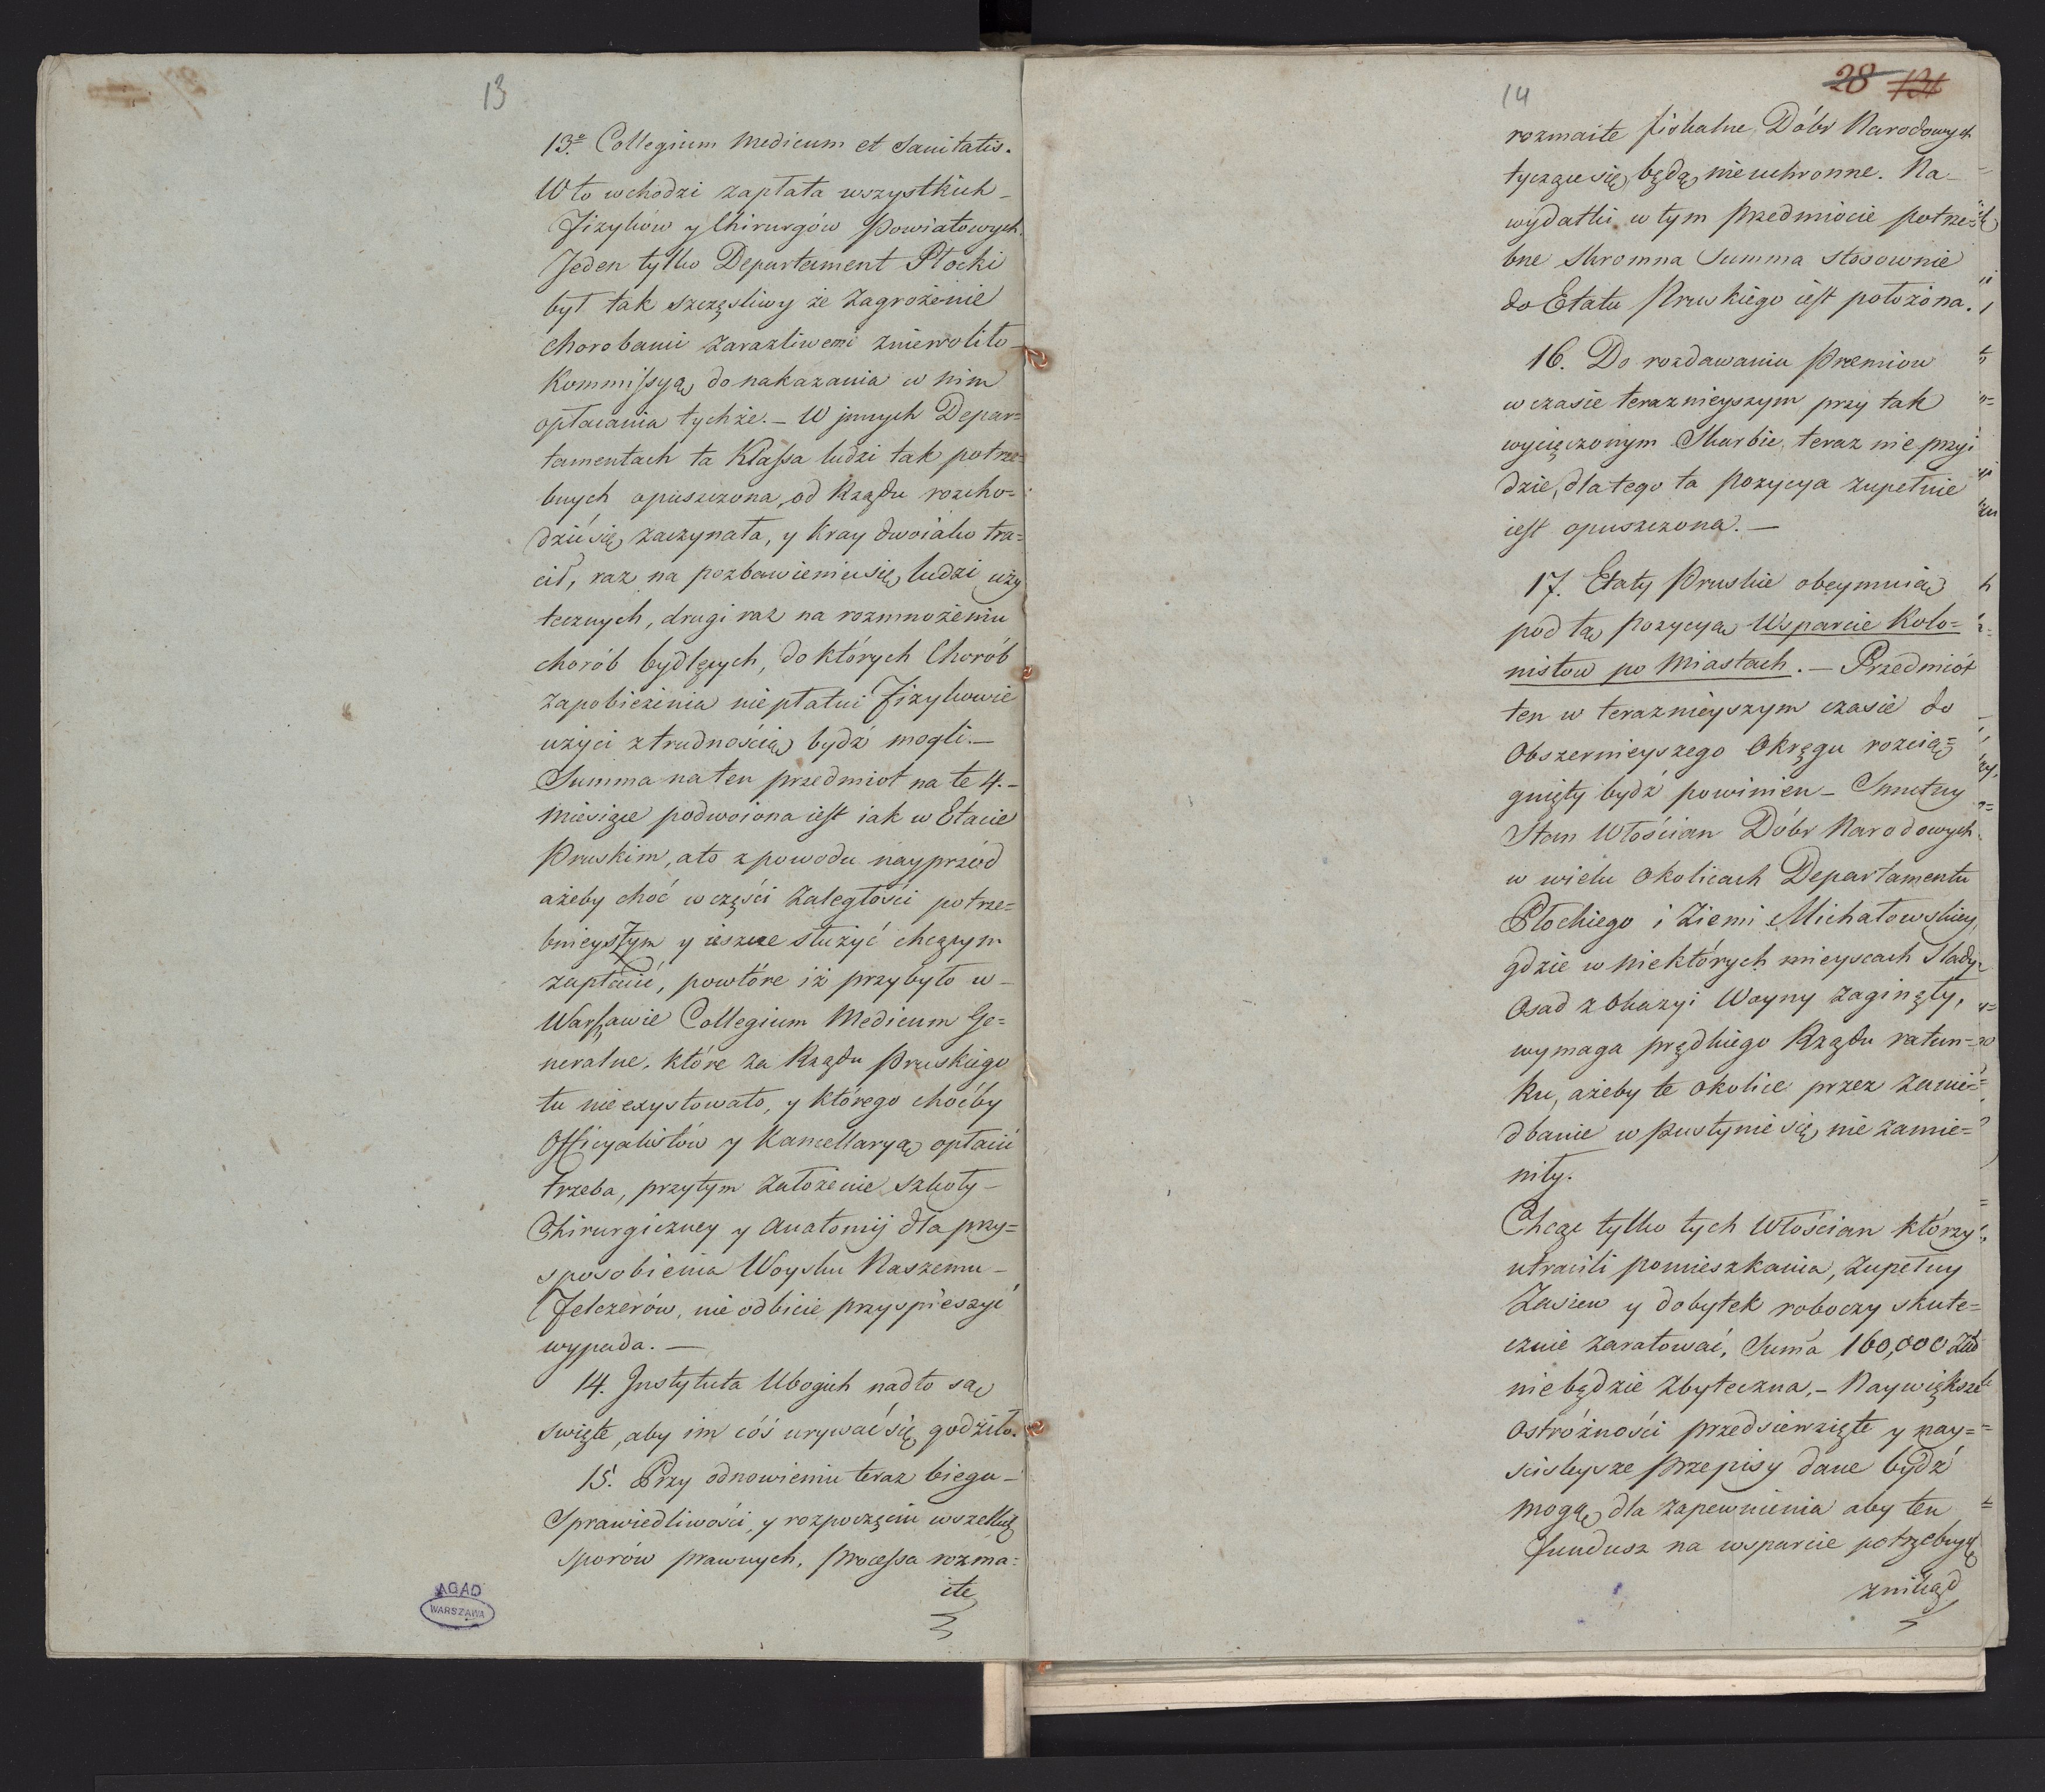 13
13º Collegium Medicum et Sanitatis.
W to wchodzi zapłata wszystkich
Fizyków y Chirurgów Powiatowych.
Jeden tylko Departament Płocki
był tak szczęsliwy że zagrożenie
chorobami zarazliwemi zniewoliło
Kommissyą do nakazania w nim
opłacania tychże. – W jnnych Depar=
tamentach ta Klassa ludzi tak potrze=
bnych opuszczona od Rządu rozcho=
dzić się zaczynała, y Kray dwoiako tra=
cił, raz na pozbawieniu się ludzi uży
tecznych, drugi raz na rozmnożeniu
chorób bydlęcych, do których Chorób
zapobieżenia niepłatni Fizykowie
użyci z trudnością bydź mogli. –
Summa na ten przedmiot na te 4. –
Miesiące podwoiona iest iak w Etacie
Pruskim, a to z powodu nayprzód
ażeby choć w części zaległości potrze=
bnieyszym y ieszcze służyć chcącym
zapłacić, powtóre iż przybyło w –
Warszawie Collegium Medicum Ge=
neralne, które za Rządu Pruskiego
tu nie exystowało, y którego choćby
Officyalistów y Kancellaryą opłacić
trzeba, przytym założenie Szkoły –
Chirurgiczney y Anatomij dla przy=
sposobienia Woysku Naszemu –
Felczerów, nieodbicie przyspieszyć
wypada. –
14. Jnstytuta Ubogich nadto są
święte, aby im cóś urywać się godziło.
15. Przy odnowieniu teraz biegu –
Sprawiedliwości, y rozpoczęciu wszelkich
sporów prawnych, processa rozma=
ite
AGAD
WARSZAWA
14
28
rozmaite fiskalne Dóbr Narodowych
tyczące się będą nieuchronne. Na –
wydatki w tym przedmiocie potrze=
bne skromna Summa stosownie
do Etatu Pruskiego iest położona.
16. Do rozdawania Premiow
w czasie teraznieyszym przy tak
wycięczonym Skarbie, teraz nie przyi
dzie, dla tego ta Pozycya zupełnie
iest opuszczona. –
17. Etaty Pruskie obeymuią
pod tą Pozycyą Wsparcie Kolo=
nistow po Miastach. – Przedmiót
ten w teraznieyszym czasie do
Obszernieyszego Okręgu rozcią=
gnięty bydź powinien – Smutny
Stan Włościan Dóbr Narodowych
w wielu Okolicach Departamentu
Płockiego i Ziemi Michałowskiey,
gdzie w niektórych mieyscach Slady
Osad z Okazyi Woyny zaginęły,
wymaga prędkiego Rządu ratun=
ku, ażeby te okolice przez zanie=
dbanie w pustynie się nie zamie=
niły.
Chcąc tylko tych Włościan którzy
utracili pomieszkania, zupełny
Zasiew y dobytek roboczy skute=
cznie zaratować, Summa 160,000
nie będzie zbyteczna, – Naywiększe
Ostróżności przedsiewzięte y nay=
scisleysze Przepisy dane bydź
mogą dla zapewnienia aby ten
Fundusz na wsparcie potrzebny
znikąd